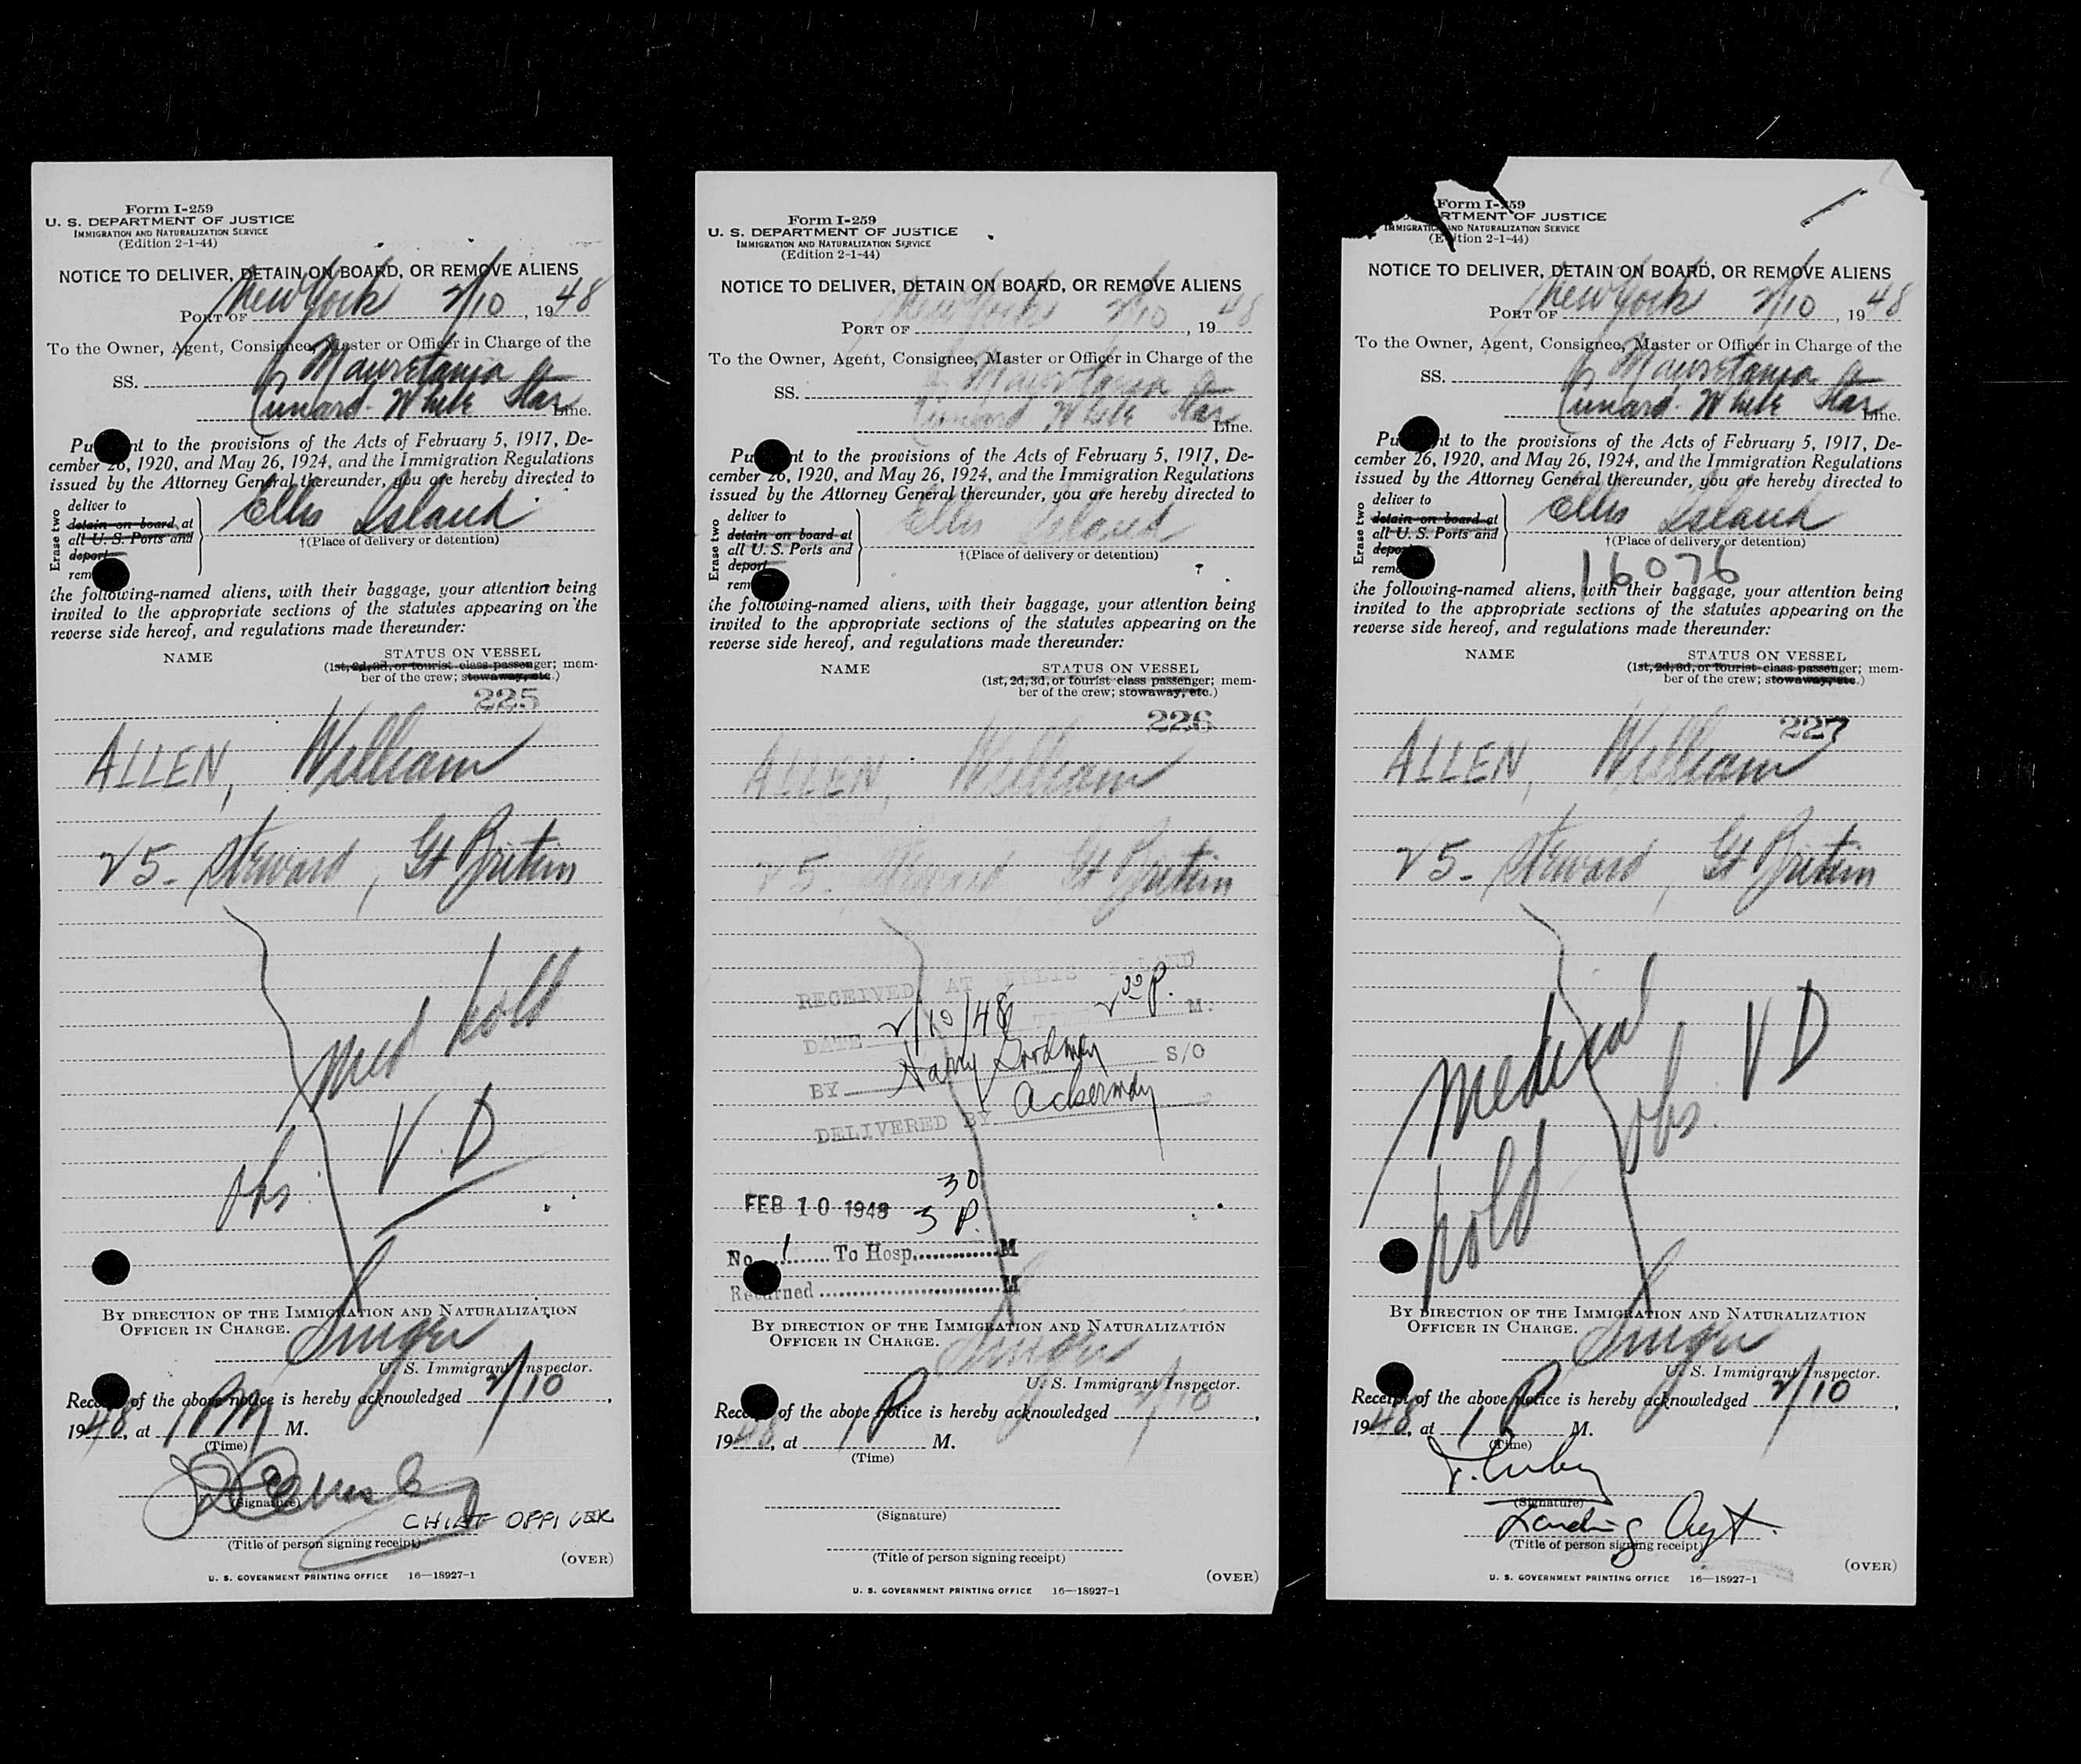 Form I-259
U. S. DEPARTMENT OF JUSTICE
IMMIGRATION AND NATURALIZATION SERVICE
(Edition 2-1-44)
NOTICE TO DELIVER, DETAIN ON BOARD, OR REMOVE ALIENS
PORT OF New York 2/10, 1948
To the Owner, Agent, Consignee, Master or Officer in Charge of the
SS. Mauretania
Cunard White Star Line.
Pu nt to the provisions of the Acts of February 5, 1917, De-
cember 26, 1920, and May 26, 1924, and the Immigration Regulations
issued by the Attorney General thereunder, you are hereby directed to
Erase two
deliver to
detain on board at
all U. S. Ports and
deport
rem
Ellis Island
†(Place of delivery or detention)
the following-named aliens, with their baggage, your attention being
invited to the appropriate sections of the statutes appearing on the
reverse side hereof, and regulations made thereunder:
NAME STATUS ON VESSEL
(1st, 2d, 3d, or tourist class passenger; mem-
ber of the crew; stowaway, etc.)
225
ALLEN, William
25 - Steward, Gt Britain
Med hold
obs. V. D
BY DIRECTION OF THE IMMIGRATION AND NATURALIZATION
OFFICER IN CHARGE. Singer
U. S. Immigrant Inspector.
Rece of the above notice is hereby acknowledged 2/10,
1948, at 1 PM M.
(Time)
(Signature)
CHIEF OFFICER
(Title of person signing receipt)
(OVER)
U. S. GOVERNMENT PRINTING OFFICE 16—18927-1
Form I-259
U. S. DEPARTMENT OF JUSTICE
IMMIGRATION AND NATURALIZATION SERVICE
(Edition 2-1-44)
NOTICE TO DELIVER, DETAIN ON BOARD, OR REMOVE ALIENS
PORT OF New York 2/10, 1948
To the Owner, Agent, Consignee, Master or Officer in Charge of the
SS. Mauretania
Cunard White Star Line.
Pu nt to the provisions of the Acts of February 5, 1917, De-
cember 26, 1920, and May 26, 1924, and the Immigration Regulations
issued by the Attorney General thereunder, you are hereby directed to
Erase two
deliver to
detain on board at
all U. S. Ports and
deport
rem
Ellis Island
†(Place of delivery or detention)
the following-named aliens, with their baggage, your attention being
invited to the appropriate sections of the statutes appearing on the
reverse side hereof, and regulations made thereunder:
NAME STATUS ON VESSEL
(1st, 2d, 3d, or tourist class passenger; mem-
ber of the crew; stowaway, etc.)
226
ALLEN, William
25 - Steward Gt Britain
RECEIVED AT ELLIS ISLAND
DATE 2/10/48 TIME 2 30 P. M.
BY Harry S/O
DELIVERED BY Ackerman
FEB 10 1948 3 30 P.
No. 1 To Hosp. M
Returned M
BY DIRECTION OF THE IMMIGRATION AND NATURALIZATION
OFFICER IN CHARGE. Singer
U. S. Immigrant Inspector.
Rece of the above notice is hereby acknowledged 2/10,
1948, at 1 P M.
(Time)
(Signature)
(Title of person signing receipt)
(OVER)
U. S. GOVERNMENT PRINTING OFFICE 16—18927-1
Form I-259
RTMENT OF JUSTICE
IMMIGRATION AND NATURALIZATION SERVICE
(Edition 2-1-44)
NOTICE TO DELIVER, DETAIN ON BOARD, OR REMOVE ALIENS
PORT OF New York 2/10, 1948
To the Owner, Agent, Consignee, Master or Officer in Charge of the
SS. Mauretania
Cunard White Star Line.
Pu nt to the provisions of the Acts of February 5, 1917, De-
cember 26, 1920, and May 26, 1924, and the Immigration Regulations
issued by the Attorney General thereunder, you are hereby directed to
Erase two
deliver to
detain on board at
all U. S. Ports and
depo
remo
Ellis Island
†(Place of delivery or detention)
16076
the following-named aliens, with their baggage, your attention being
invited to the appropriate sections of the statutes appearing on the
reverse side hereof, and regulations made thereunder:
NAME STATUS ON VESSEL
(1st, 2d, 3d, or tourist class passenger; mem-
ber of the crew; stowaway, etc.)
227
ALLEN, William
25 - Steward, Gt Britain
Medical obs. V D
hold
BY DIRECTION OF THE IMMIGRATION AND NATURALIZATION
OFFICER IN CHARGE. Singer
U. S. Immigrant Inspector.
Receipt of the above notice is hereby acknowledged 2/10,
1948, at 1 P M.
(Time)
(Signature)
Landing Agt.
(Title of person signing receipt)
(OVER)
U. S. GOVERNMENT PRINTING OFFICE 16—18927-1